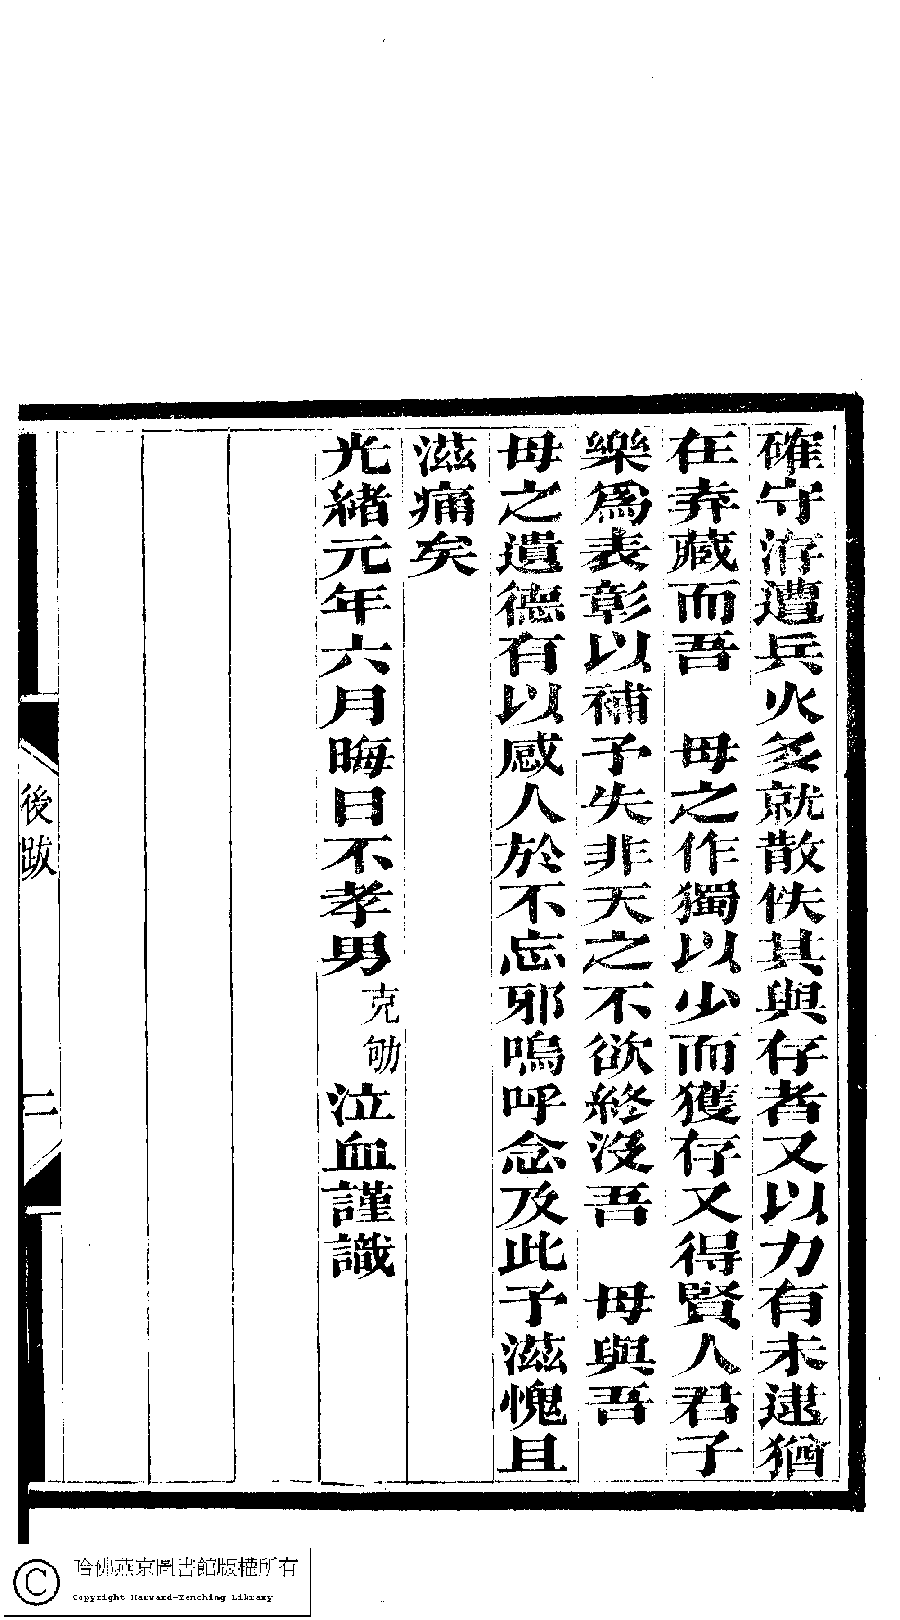 確守洊遭兵火多就散佚其與存者又以力有未逮猶
在弆藏而吾　母之作獨以少而獲存又得賢人君子
樂爲表彰以補予失非天之不欲終沒吾　母與吾
母之遺德有以感人於不忘邪嗚呼念及此予滋愧且
滋痛矣
光緒元年六月晦日不孝男克劬泣血謹識
後跋
二
哈佛燕京圖書館版權所有
Copyright Harvard-Yenching Library